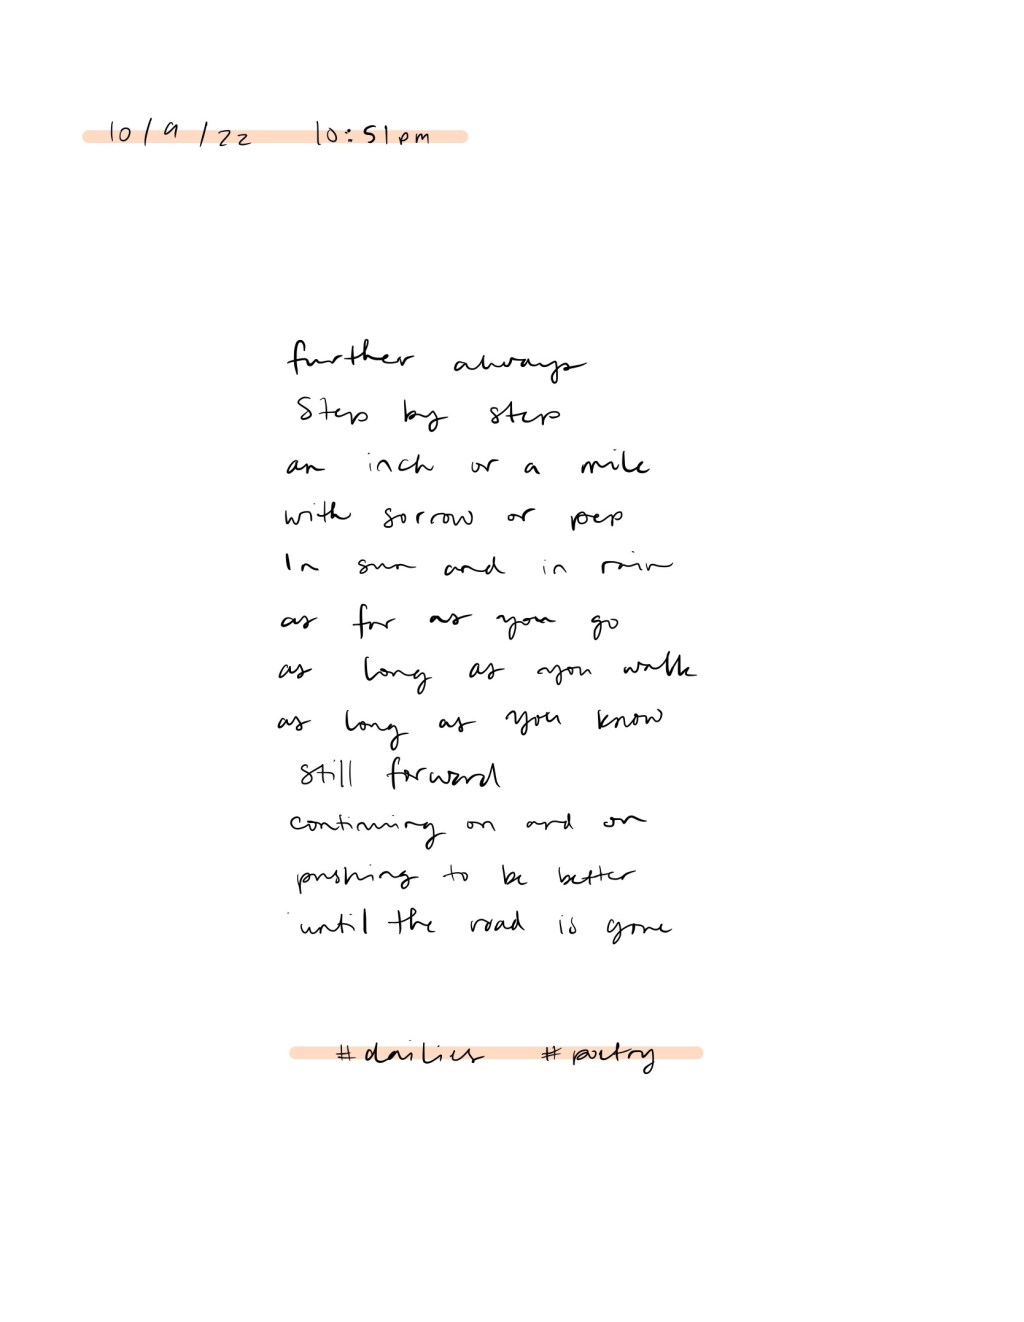 10/9/22 10:51pm
further always
Step by step
an inch or a mile
with sorrow or pep
In sun and in rain
as far as you go
as long as you walk
as long as you know
still forward
continuing on and on
pushing to be better
until the road is gone
#dailies #poetry